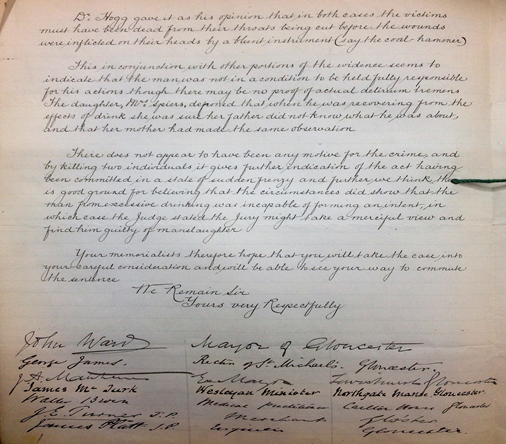 Dr. Hogg gave it as his opinion that in both cases the victims
must have been dead from their throats being cut before the wounds
were inflicted on their heads by a blunt instrument (say the coal hammer)
This in conjunction with other portions of the evidence seems to
indicate that the man was not in a condition to be held fully responsible
for his actions though there may be no proof of actual delirium tremens
The daughter, Mrs Speirs, deposed that when he was recovering from the
effects of drink she was sure her father did not know what he was about,
and that her mother had made the same observation
There does not appear to have been any motive for the crime, and
by killing two individuals it gives further indication of the act having
been committed in a state of sudden frenzy and further, we think
is good ground for believing that the circumstances did show that the
man from excessive drinking was incapable of forming an intent, in
which case the Judge stated the Jury might take a merciful view and
find him guilty of manslaughter
Your memorialists therefore hope that you will take the case into
your careful consideration and will be able to see your way to commute
the sentence
We Remain Sir
Yours very Respectfully
John Ward Mayor of Gloucester
George James. Rector of St Michael's, Gloucester.
J. A. Ex Mayor
James Mc Turk Wesleyan Minister Northgate Manse, Gloucester.
Walter Medical Gloucester
J. E. J.P. Merchant Gloster
James Platt J.P. Engineer Gloucester.